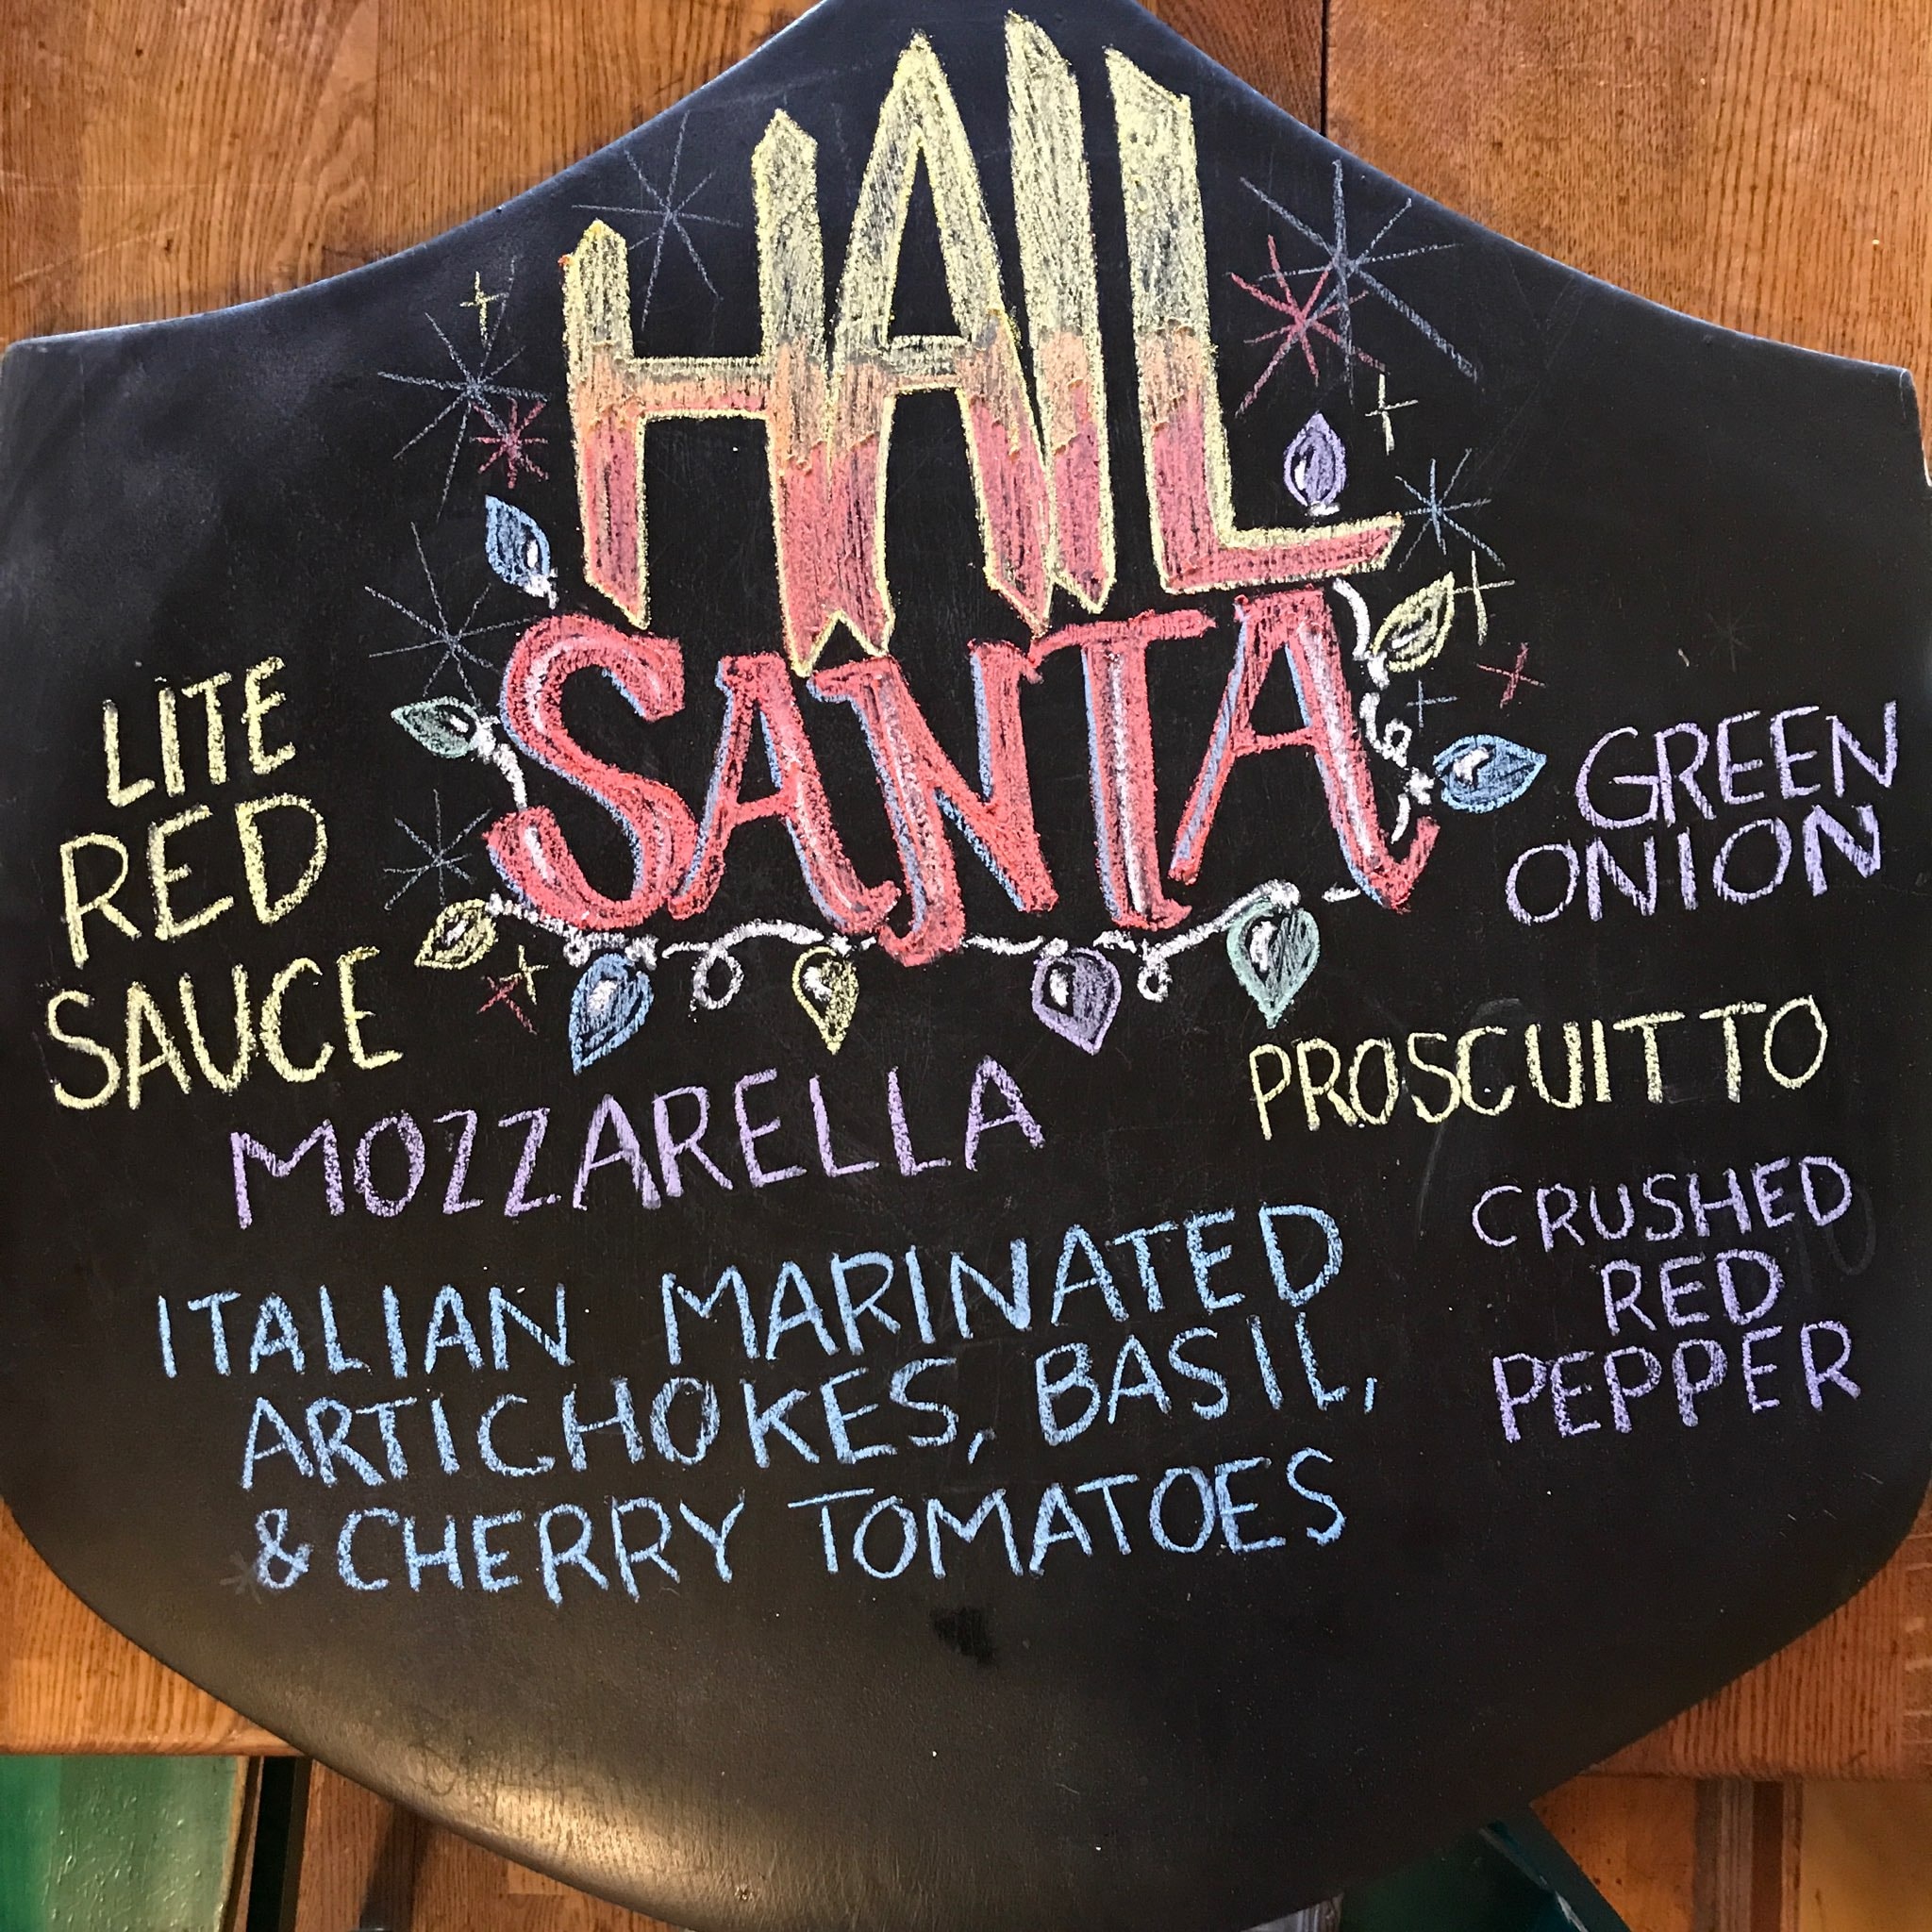 HAIL
SANTA
LITE
RED
SAUCE
MOZZARELLA
ITALIAN MARINATED
ARTICHOKES, BASIL,
& CHERRY TOMATOES
GREEN
ONION
PROSCUITTO
CRUSHED
RED
PEPPER